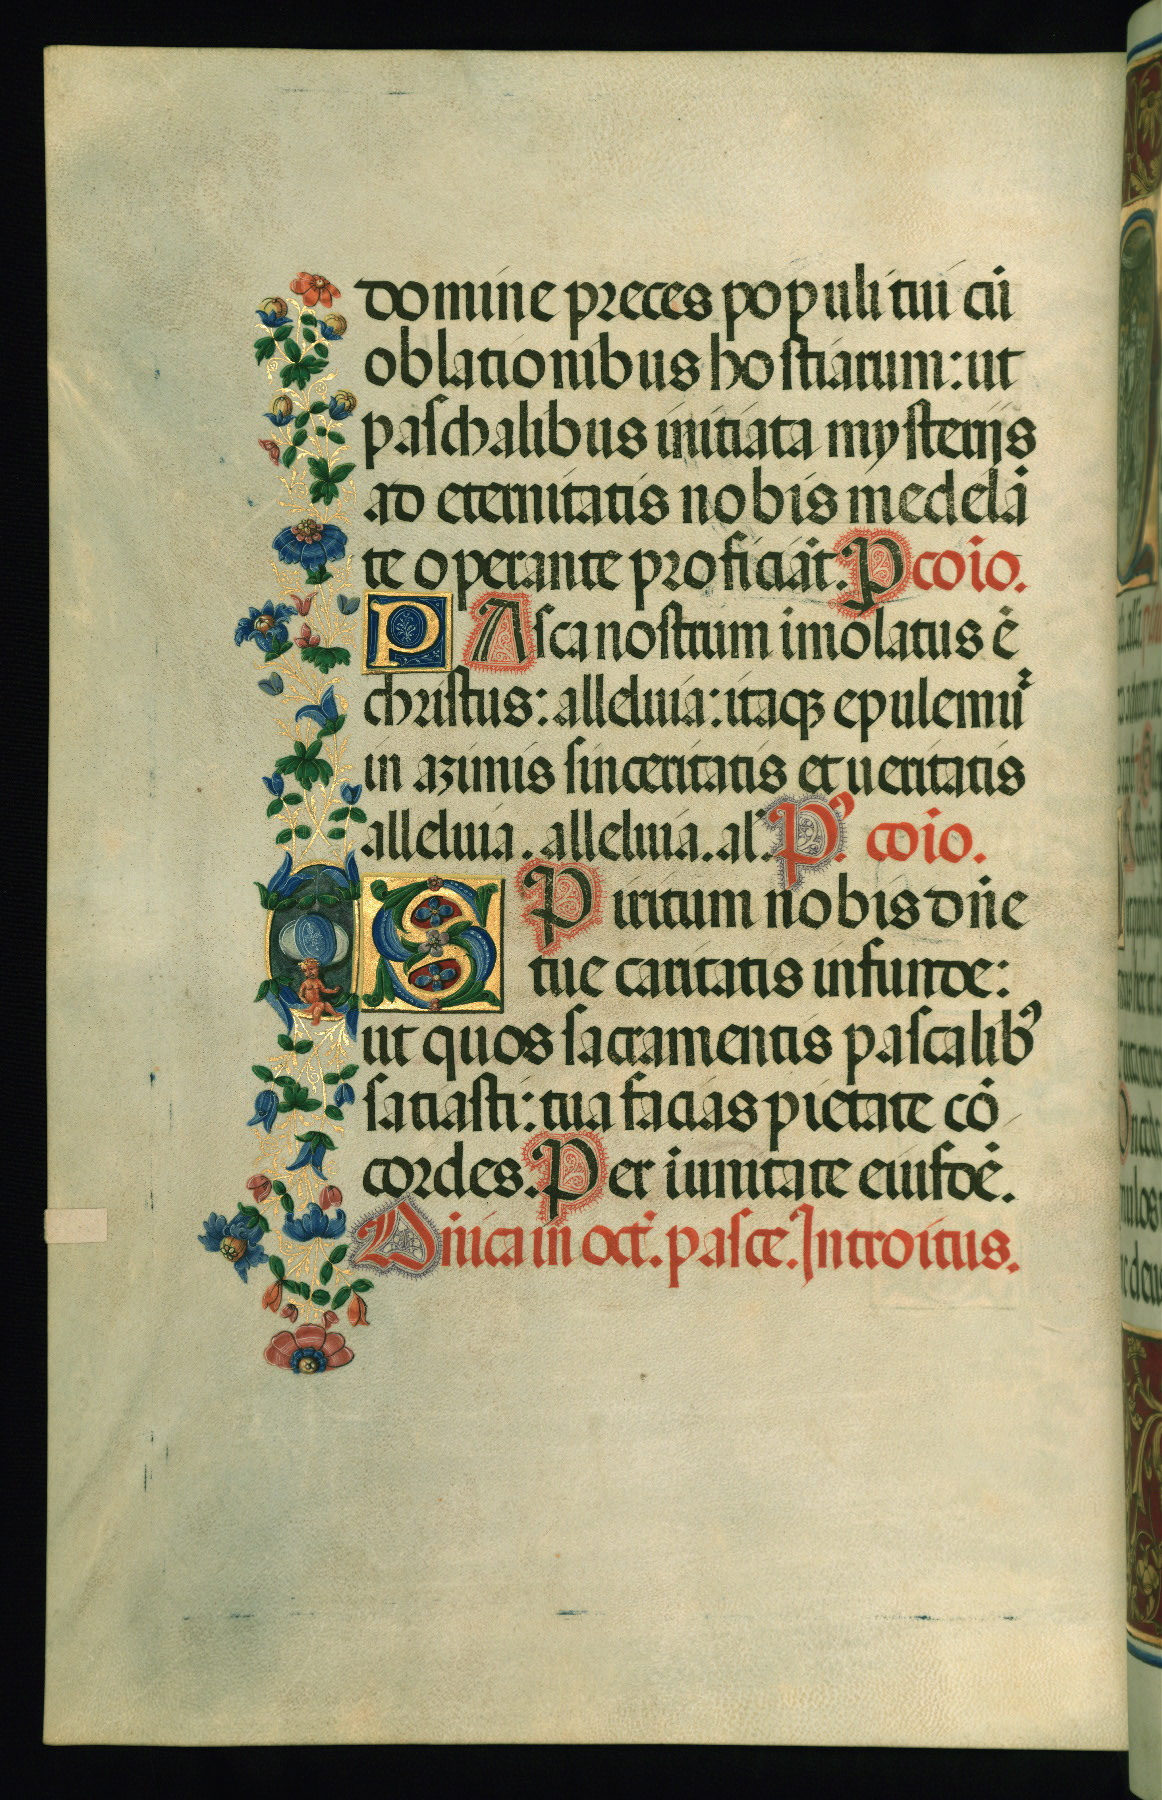 domine preces populi tui cũ
oblationibus hostiarum: ut
paschalibus initiata mysterijs
ad eternitatis nobis medelã
te operante proficiãt. Pcoĩo.
PAsca nostrum imolatus ẽ
christus: alleluia: itaqꝫ epulemur
in azimis sinceritatis et ueritatis
alleluia. alleluia. al'. P'. coĩo.
SPiritum nobis dñe
tue caritatis infunde:
ut quos sacramentis pascalibꝰ
satiasti: tua facias pietate cõ
cordes. Per i unitate eiusdẽ.
Dñica in oct'. pasce. Introitus.